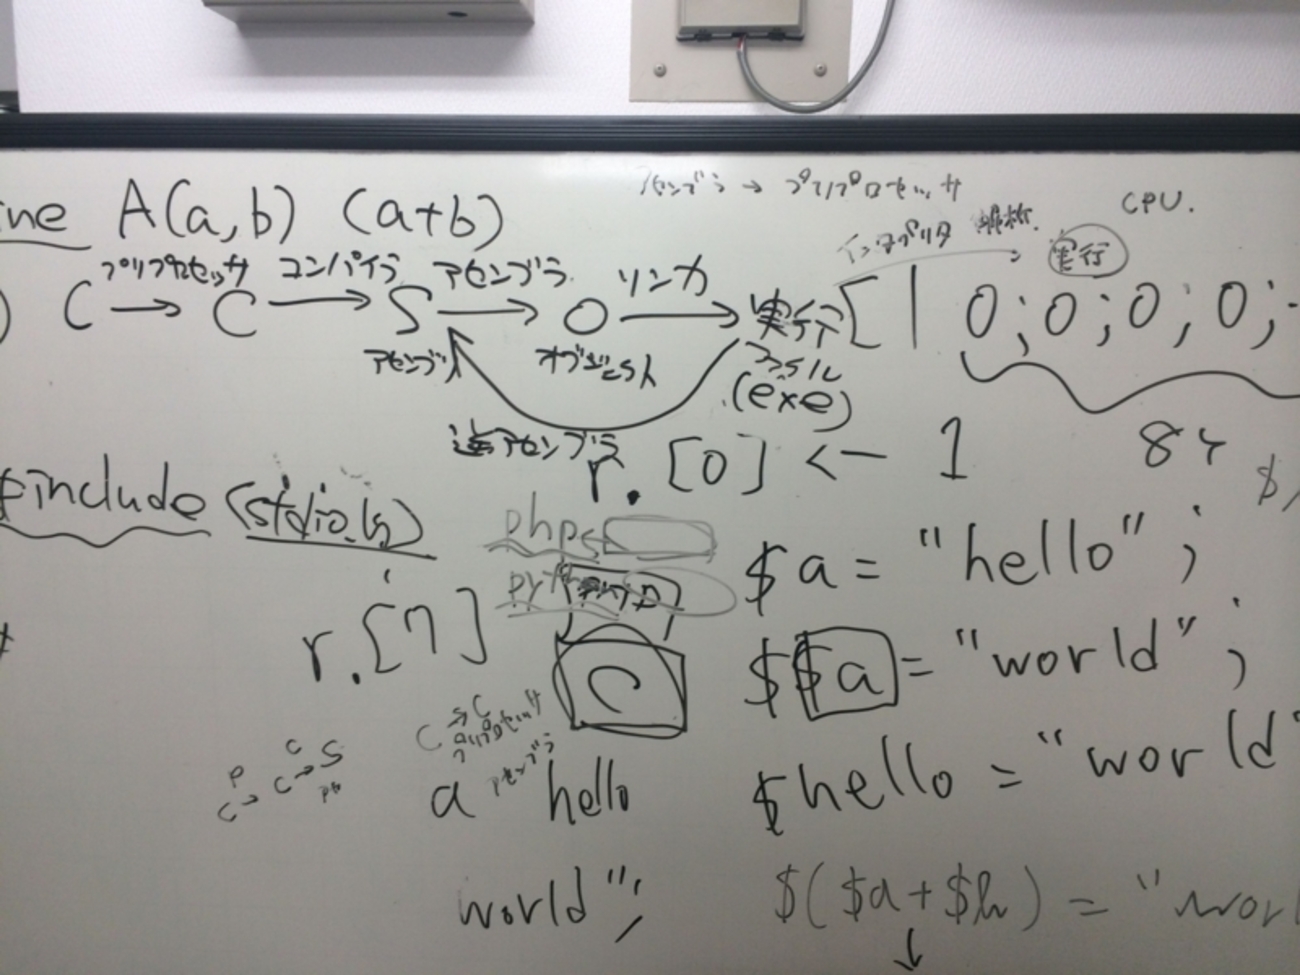 アセンブラ → プリプロセッサ
CPU.
ine A(a,b) (a+b)
インタプリタ 実行
プリプロセッサ コンパイラ アセンブラ リンカ
C → C → S → O → 実行 [1 0;0;0;0;
アセンブリ オブジェクト ファイル
(exe)
逆アセンブラ
r.[0] ← 1 84
#include (stdio.h)
php
$a = "hello";
r.[7]
C
$$a = "world";
C → C
プリプロセッサ
P C
C → C → S
アセンブラ
a hello
$hello = "world"
world";
$($a+$h) = "worl
↓